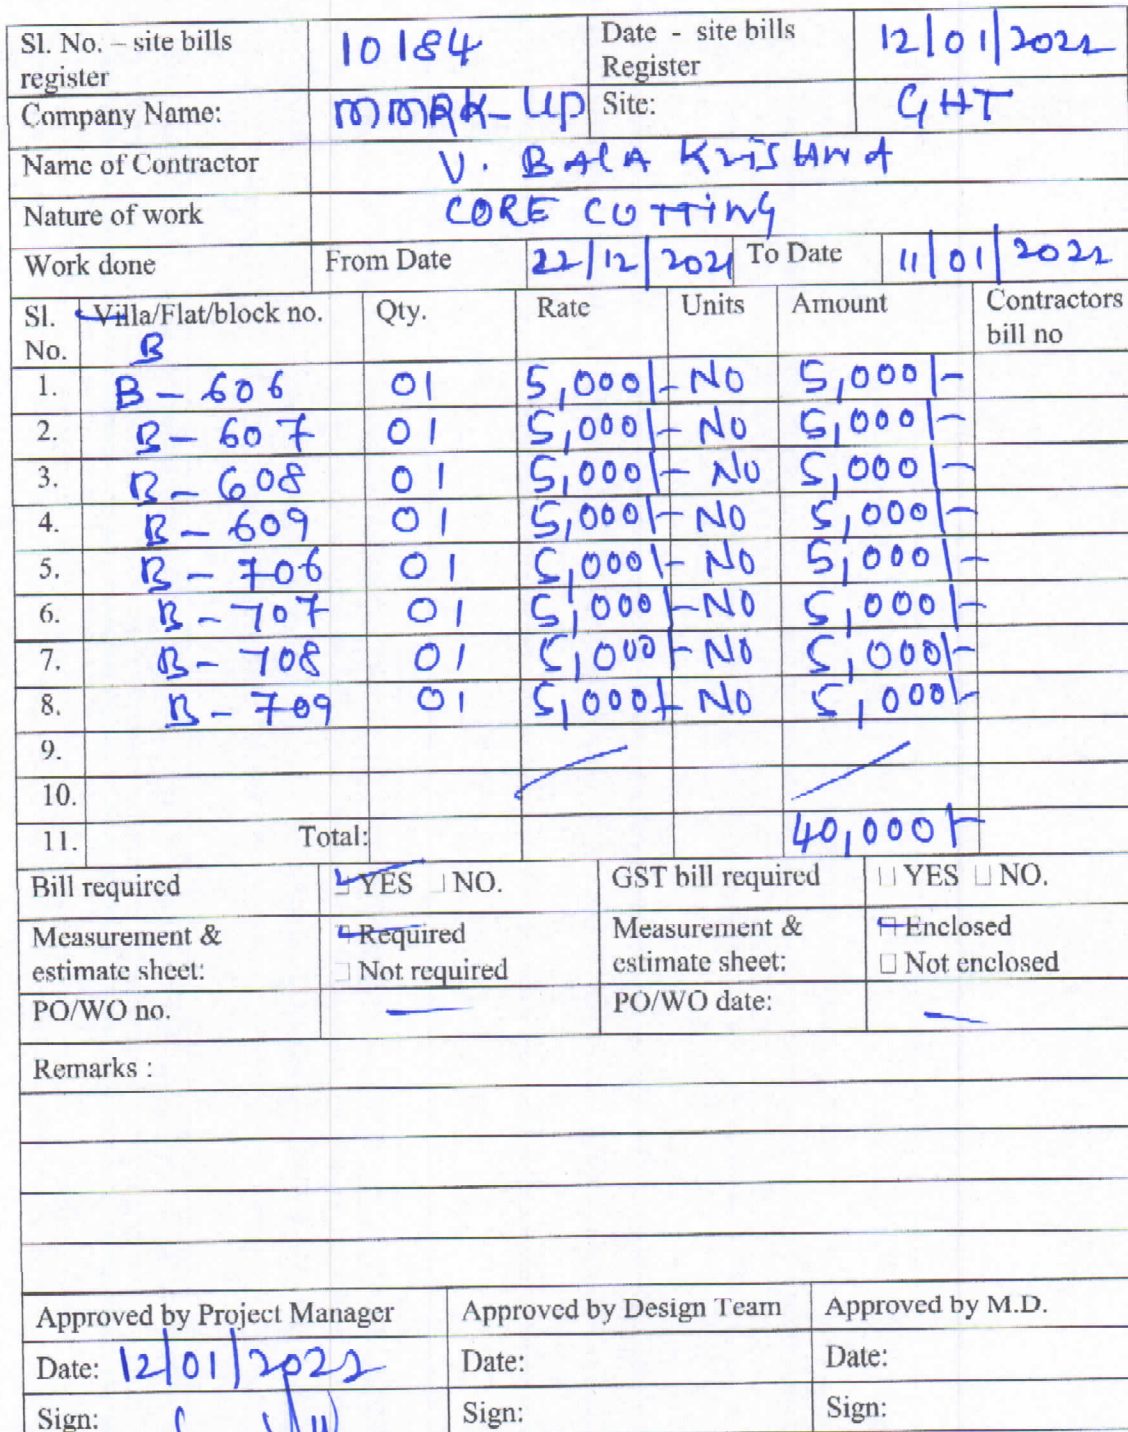 Sl. No. – site bills register 10184 Date - site bills Register 12/01/2022
Company Name: MMRK-UP Site: GHT
Name of Contractor V. BALA KRISHNA
Nature of work CORE CUTTING
Work done From Date 22/12/2021 To Date 11/01/2022
Sl. No. Villa/Flat/block no. B Qty. Rate Units Amount Contractors bill no
1. B-606 01 5,000/- NO 5,000/-
2. B-607 01 5,000/- NO 5,000/-
3. B-608 01 5,000/- NO 5,000/-
4. B-609 01 5,000/- NO 5,000/-
5. B-706 01 5,000/- NO 5,000/-
6. B-707 01 5,000/- NO 5,000/-
7. B-708 01 5,000/- NO 5,000/-
8. B-709 01 5,000/- NO 5,000/-
9.
10.
11. Total: 40,000/-
Bill required YES NO. GST bill required YES NO.
Measurement & estimate sheet: Required Not required Measurement & estimate sheet: Enclosed Not enclosed
PO/WO no. — PO/WO date: —
Remarks :
Approved by Project Manager Approved by Design Team Approved by M.D.
Date: 12/01/2022 Date: Date:
Sign: Sign: Sign: